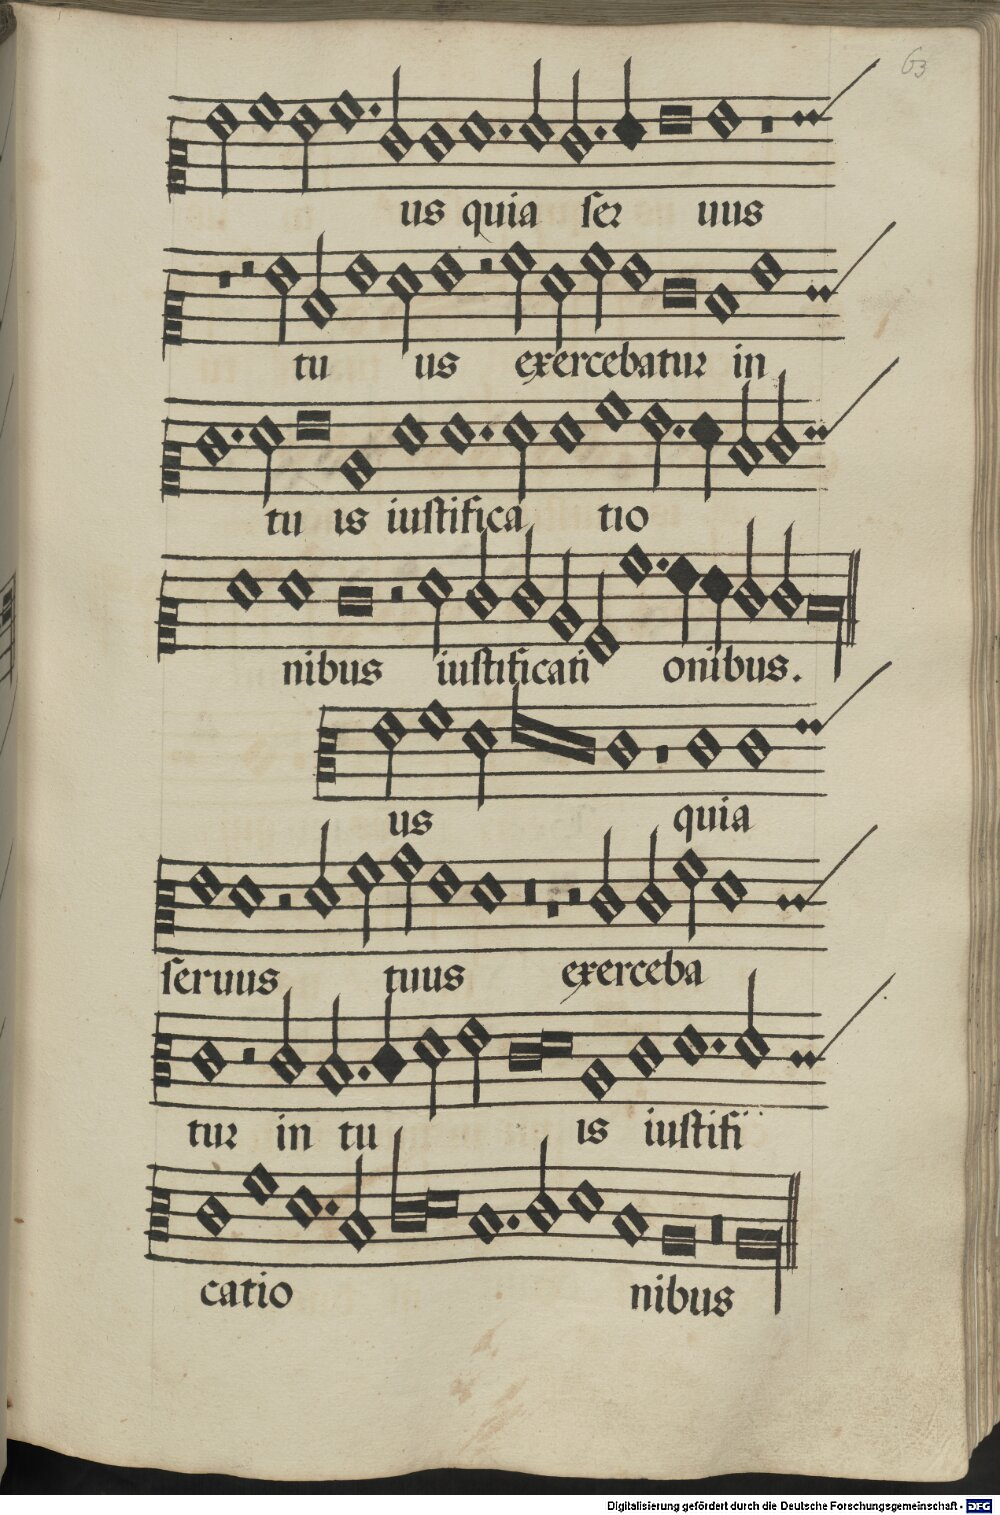 63
us quia ser uus
tu us exercebatur in
tu is iustifica tio
nibus iustificati onibus.
us quia
seruus tuus exerceba
tur in tu is iustifi
catio nibus
Digitalisierung gefördert durch die Deutsche Forschungsgemeinschaft - DFG